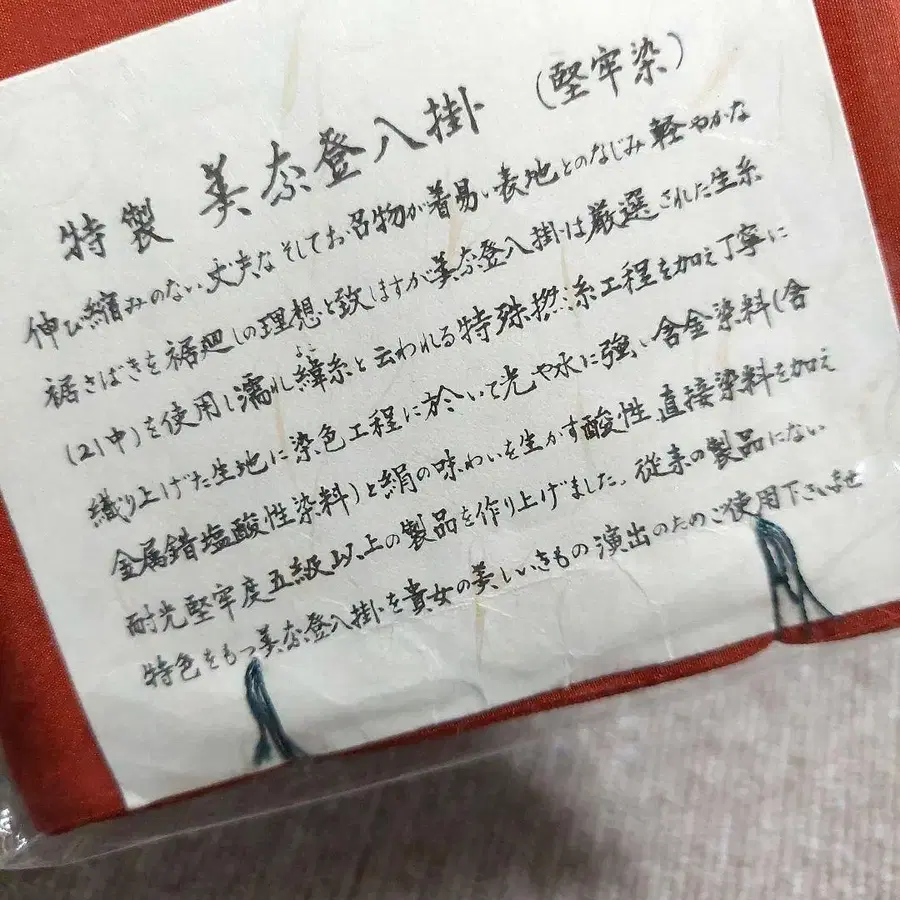 特製 美奈登八掛 (堅牢染)
伸び縮みのない丈夫なそしてお召物が着易い表地とのなじみ軽やかな
裾さばきを裾廻しの理想と致しますが美奈登八掛は厳選された生糸
(21中)を使用し濡れ緯糸と云われる特殊撚糸工程を加え丁寧に
よこ
織り上げた生地に染色工程に於いて光や水に強い含金染料(含
金属錯塩酸性染料)と絹の味わいを生かす酸性直接染料を加え
耐光堅牢度五級以上の製品を作り上げました。従来の製品にない
特色をもつ美奈登八掛を貴女の美しいきもの演出のためご使用下さいませ